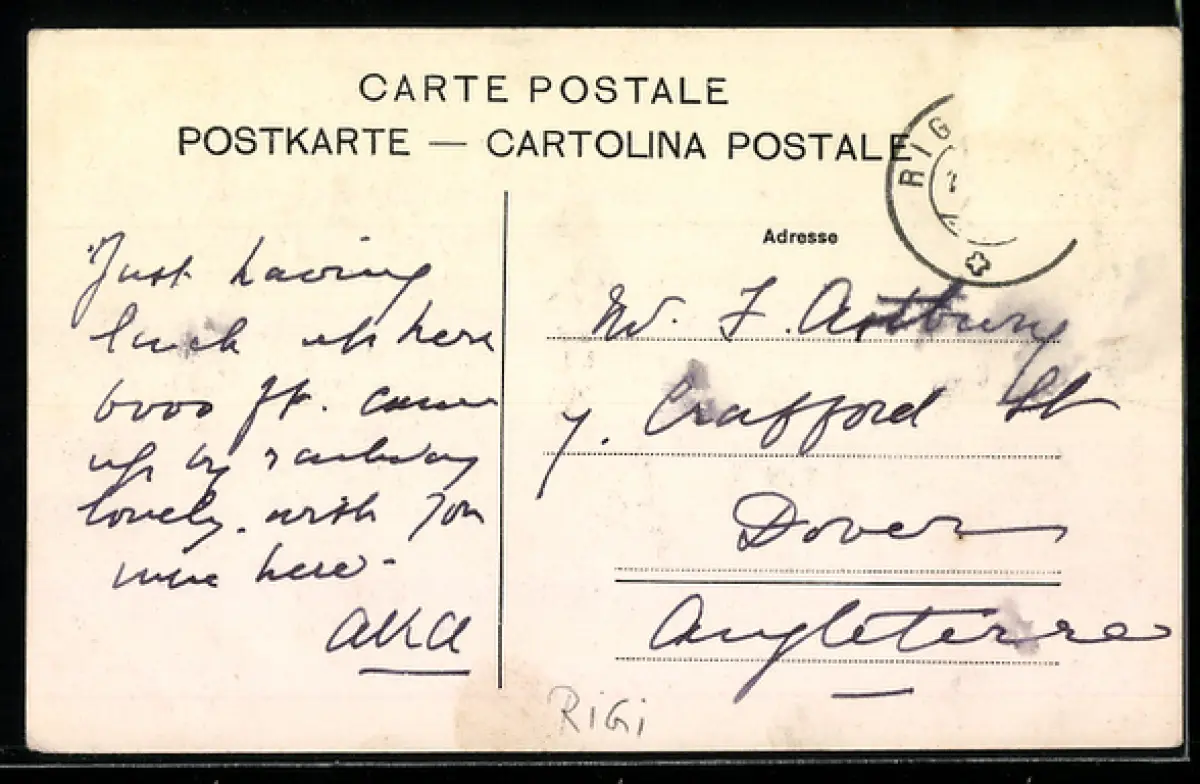 CARTE POSTALE
POSTKARTE — CARTOLINA POSTALE
RIG
Adresse
Just having
lunch up here
6000 ft. came
up by railway
lovely. wish you
were here -
AKA
Mr. F. Astbury
7. Crafford St
Dover
Angleterre
RiGi